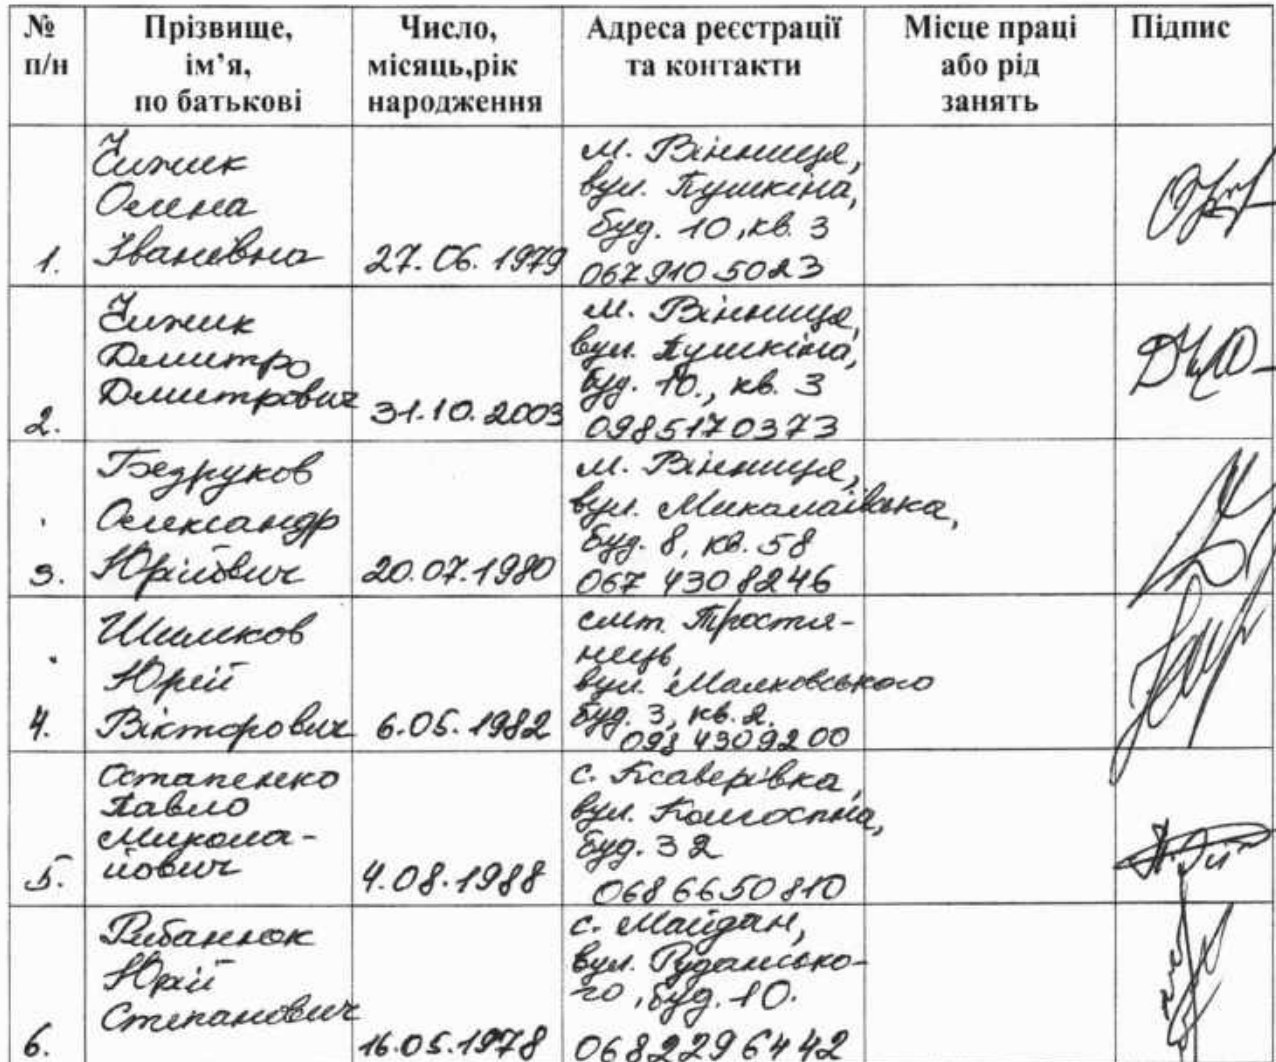 № п/н
Прізвище, ім’я, по батькові
Число, місяць,рік народження
Адреса реєстрації та контакти
Місце праці або рід занять
Підпис
1.
Чижик
Олена
Іванівна
27.06.1979
м. Вінниця,
вул. Пушкіна,
буд. 10, кв. 3
067 910 5023
2.
Чижик
Дмитро
Дмитрович
31.10.2003
м. Вінниця,
вул. Пушкіна,
буд. 10., кв. 3
0985170373
3.
Бедруков
Олександр
Юрійович
20.07.1980
м. Вінниця,
вул. Миколаївська,
буд. 8, кв. 58
067 4308246
4.
Шимков
Юрій
Вікторович
6.05.1982
смт. Тростя-
нець,
вул. Малковського
буд. 3, кв. 2.
098 4309200
5.
Остапенко
Павло
Микола-
йович
4.08.1988
с. Ксаверівка,
вул. Колгоспна,
буд. 32
068 6650810
6.
Рибанюк
Юрій
Степанович
16.05.1978
с. Майдан,
вул. Рудансько-
го, буд. 10.
0682296442